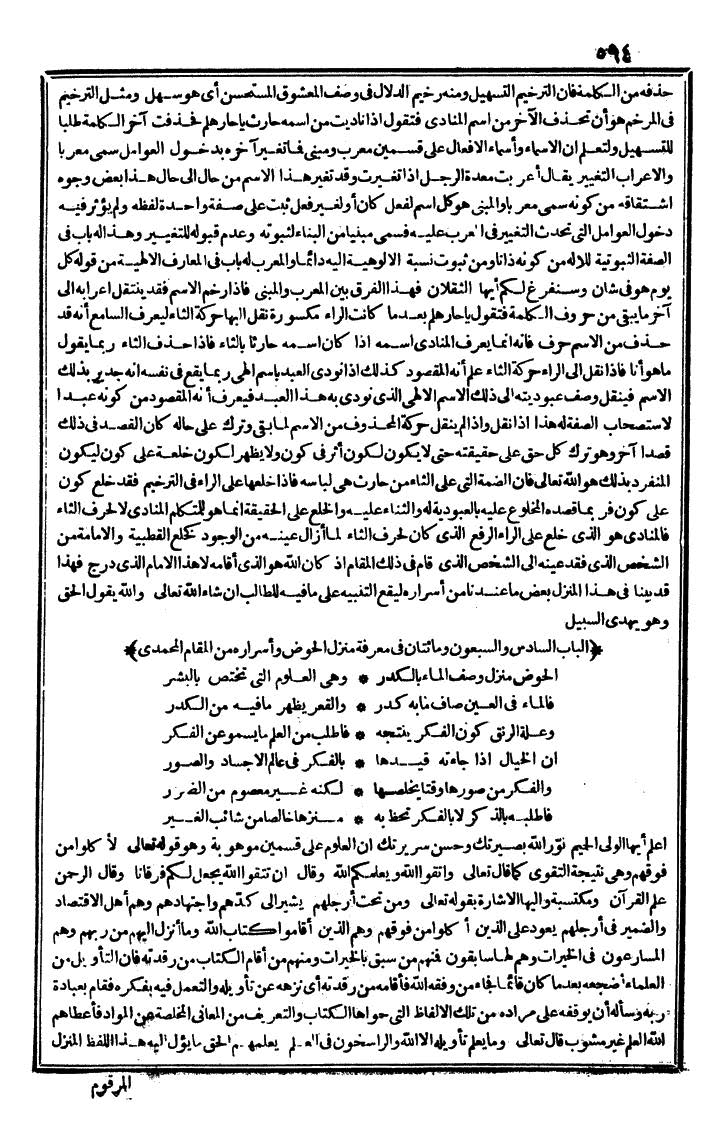 ٥٩٤
حذفه من الكلمة فان الترخيم التسهيل ومنه رخيم الدلال فى وصف المعشوق المستحسن أى هو سهل ومثل الترخيم
فى المرخم هو أن تحذف الآخر من اسم المنادى فتقول اذا ناديت من اسمه حارث ياحار هلم فحذفت آخر الكلمة طلبا
للتسهيل ولتعلم ان الاسماء وأسماء الافعال على قسمين معرب ومبنى فما تغير آخره بدخول العوامل سمى معربا
والاعراب التغيير يقال أعربت معدة الرجل اذا تغيرت وقد تغير هذا الاسم من حال الى حال هذا بعض وجوه
اشتقاقه من كونه سمى معربا والمبنى هو كل اسم لفعل كان أو لغير فعل ثبت على صفة واحدة لفظه ولم يؤثر فيه
دخول العوامل التى تحدث التغيير فى المعرب عليه فسمى مبنيا من البناء لثبوته وعدم قبوله للتغيير وهذا له باب فى
الصفة الثبوتية للاله من كونه ذاتا ومن ثبوت نسبة الالوهية اليه دائما والمعرب له باب فى المعارف الالهية من قوله كل
يوم هو فى شان وسنفرغ لكم أيها الثقلان فهذا الفرق بين المعرب والمبنى فاذا رخم الاسم فقد ينتقل اعرابه الى
آخر ما يبقى من حروف الكلمة فتقول ياحار هلم بعد ما كانت الراء مكسورة نقل اليها حركة الثاء ليعرف السامع أنه قد
حذف من الاسم حرف فانه انما يعرف المنادى اسمه اذا كان اسمه حارثا بالثاء فاذا حذف الثاء ربما يقول
ما هو أنا فاذا نقل الى الراء حركة الثاء علم أنه المقصود كذلك اذا نودى العبد باسم الهى ربما يقع فى نفسه انه جدير بذلك
الاسم فينقل وصف عبوديته الى ذلك الاسم الالهى الذى نودى به هذا العبد فيعرف أنه المقصود من كونه عبدا
لاستصحاب الصفة له هذا اذا نقل واذا لم ينقل حركة المحذوف من الاسم لما بقى وترك على حاله كان القصد فى ذلك
قصدا آخر وهو ترك كل حق على حقيقته حتى لا يكون لكون أثر فى كون ولا يظهر لكون خلعة على كون ليكون
المنفرد بذلك هو الله تعالى فان الضمة التى على الثاء من حارث هى لباسه فاذا خلعها على الراء فى الترخيم فقد خلع كون
على كون فربما قصده المخلوع عليه بالعبودية له والثناء عليه والخلع على الحقيقة انما هو للمتكلم المنادى لا لحرف الثاء
فالمنادى هو الذى خلع على الراء الرفع الذى كان لحرف الثاء لما أزال عينه من الوجود كخلع القطبية والامامة من
الشخص الذى فقد عينه الى الشخص الذى قام فى ذلك المقام اذ كان الله هو الذى أقامه لا هذا الامام الذى درج فهذا
قد بينا فى هذا المنزل بعض ما عندنا من أسراره ليقع التنبيه على ما فيه للطالب ان شاء الله تعالى والله يقول الحق
وهو يهدى السبيل
﴿الباب السادس والسبعون ومائتان فى معرفة منزل الحوض وأسراره من المقام المحمدى﴾
الحوض منزل وصف الماء بالكدر * وهى العلوم التى تختص بالبشر
فالماء فى العين صاف ما به كدر * والقعر يظهر ما فيه من الكدر
وعلة الرنق كون الفكر ينتجه * فاطلب من العلم ما يسمو عن الفكر
ان الخيال اذا جاءته قيدها * بالفكر فى عالم الاجساد والصور
والفكر من صورها وقتا يخلصها * لكنه غير معصوم من الضرر
فاطلبه بالذكر لا بالفكر تحظ به * منزها خالصا من شائب الغير
اعلم أيها الولى الحميم نور الله بصيرتك وحسن سريرتك ان العلوم على قسمين موهوبة وهو قوله تعالى لأكلوا من
فوقهم وهى نتيجة التقوى كما قال تعالى واتقوا الله ويعلمكم الله وقال ان تتقوا الله يجعل لكم فرقانا وقال الرحمن
علم القرآن ومكتسبة واليها الاشارة بقوله تعالى ومن تحت أرجلهم يشير الى كدهم واجتهادهم وهم أهل الاقتصاد
والضمير فى أرجلهم يعود على الذين أكلوا من فوقهم وهم الذين أقاموا كتاب الله وما أنزل اليهم من ربهم وهم
المسارعون فى الخيرات وهم لها سابقون فمنهم من سبق بالخيرات ومنهم من أقام الكتاب من رقدته فان التأويل من
العلماء أضجعه بعد ما كان قائما فجاء من وفقه الله فأقامه من رقدته أى نزهه عن تأويله والتعمل فيه بفكره فقام بعبادة
ربه وسأله أن يوقفه على مراده من تلك الالفاظ التى حواها الكتاب والتعريف من المعانى المخلصة عن المواد فأعطاهم
الله العلم غير مشوب قال تعالى وما يعلم تأويله الا الله والراسخون فى العلم يعلمهم الحق ما يؤل اليه هذا اللفظ المنزل
المرقوم